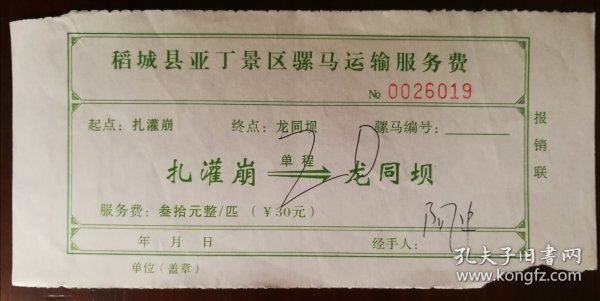 稻城县亚丁景区骡马运输服务费
№ 0026019
起点：扎灌崩 终点：龙同坝 骡马编号：
单程
扎灌崩 龙同坝
20
服务费：叁拾元整/匹（￥30元）
年 月 日 经手人：
单位（盖章）
报销联
孔夫子旧书网
www.kongfz.com